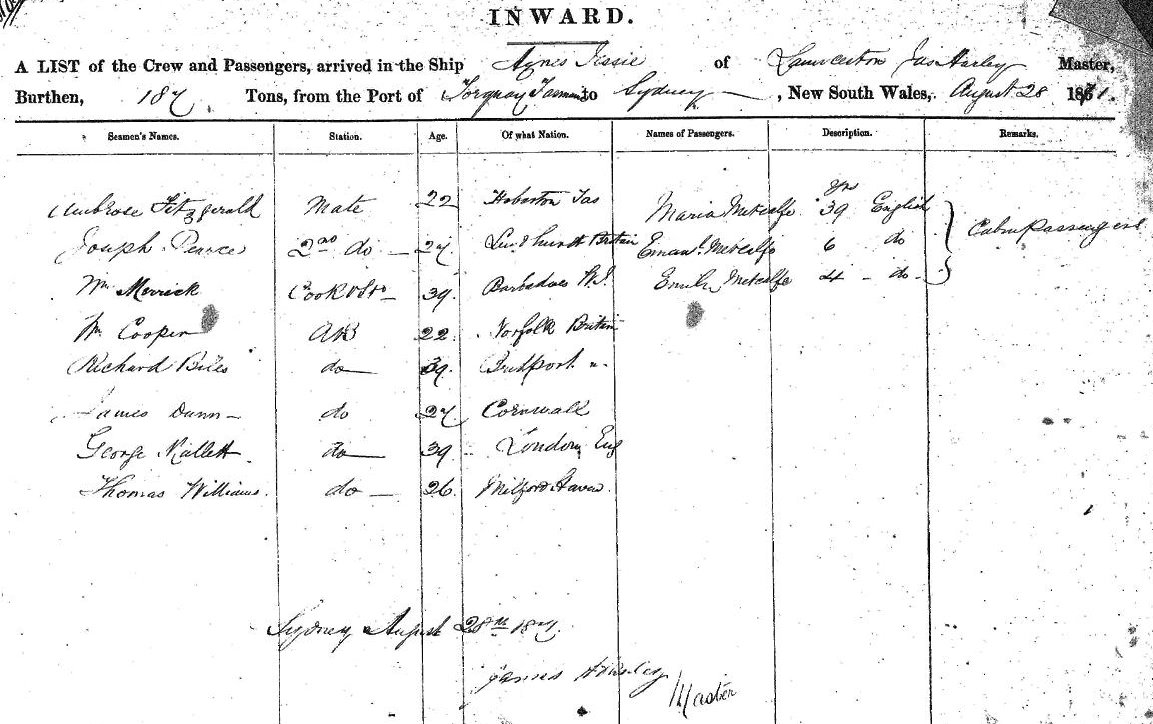 INWARD.
A LIST of the Crew and Passengers, arrived in the Ship Agnes Jessie of Launceston Jas Master,
Burthen, 187 Tons, from the Port of Torquay Tasman to Sydney, New South Wales, August 28 1871.
Seamen's Names. Station. Age. Of what Nation. Names of Passengers. Description. Remarks.
Ambrose Fitzgerald Mate 22 Hobarton Tas Maria Metcalfe 39 yrs English Cabin Passengers
Joseph Pearce 2nd do 27 Britain Emanl. Metcalfe 6 do
Wm Merrick Cook & Std 39 Barbadoes W.I. Emily Metcalfe 4 do
Wm Cooper AB 22 Norfolk Britain
Richard do 39 Bridport "
James Dunn do 27 Cornwall
George do 39 London Eng
Thomas Williams do 26 Milford Haven
Sydney August 28th 1871
James
Master